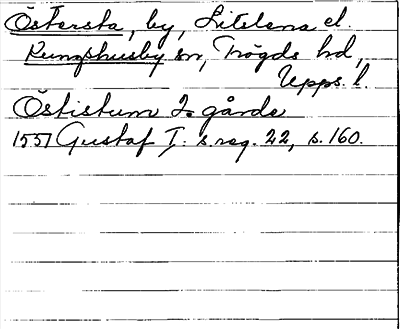 Östersta, by, Litslena el.
Kungshusby sn, Trögds hd,
Upps. l.
Östistum 2 gårde
1557 Gustaf I. s reg. 22, s. 160.